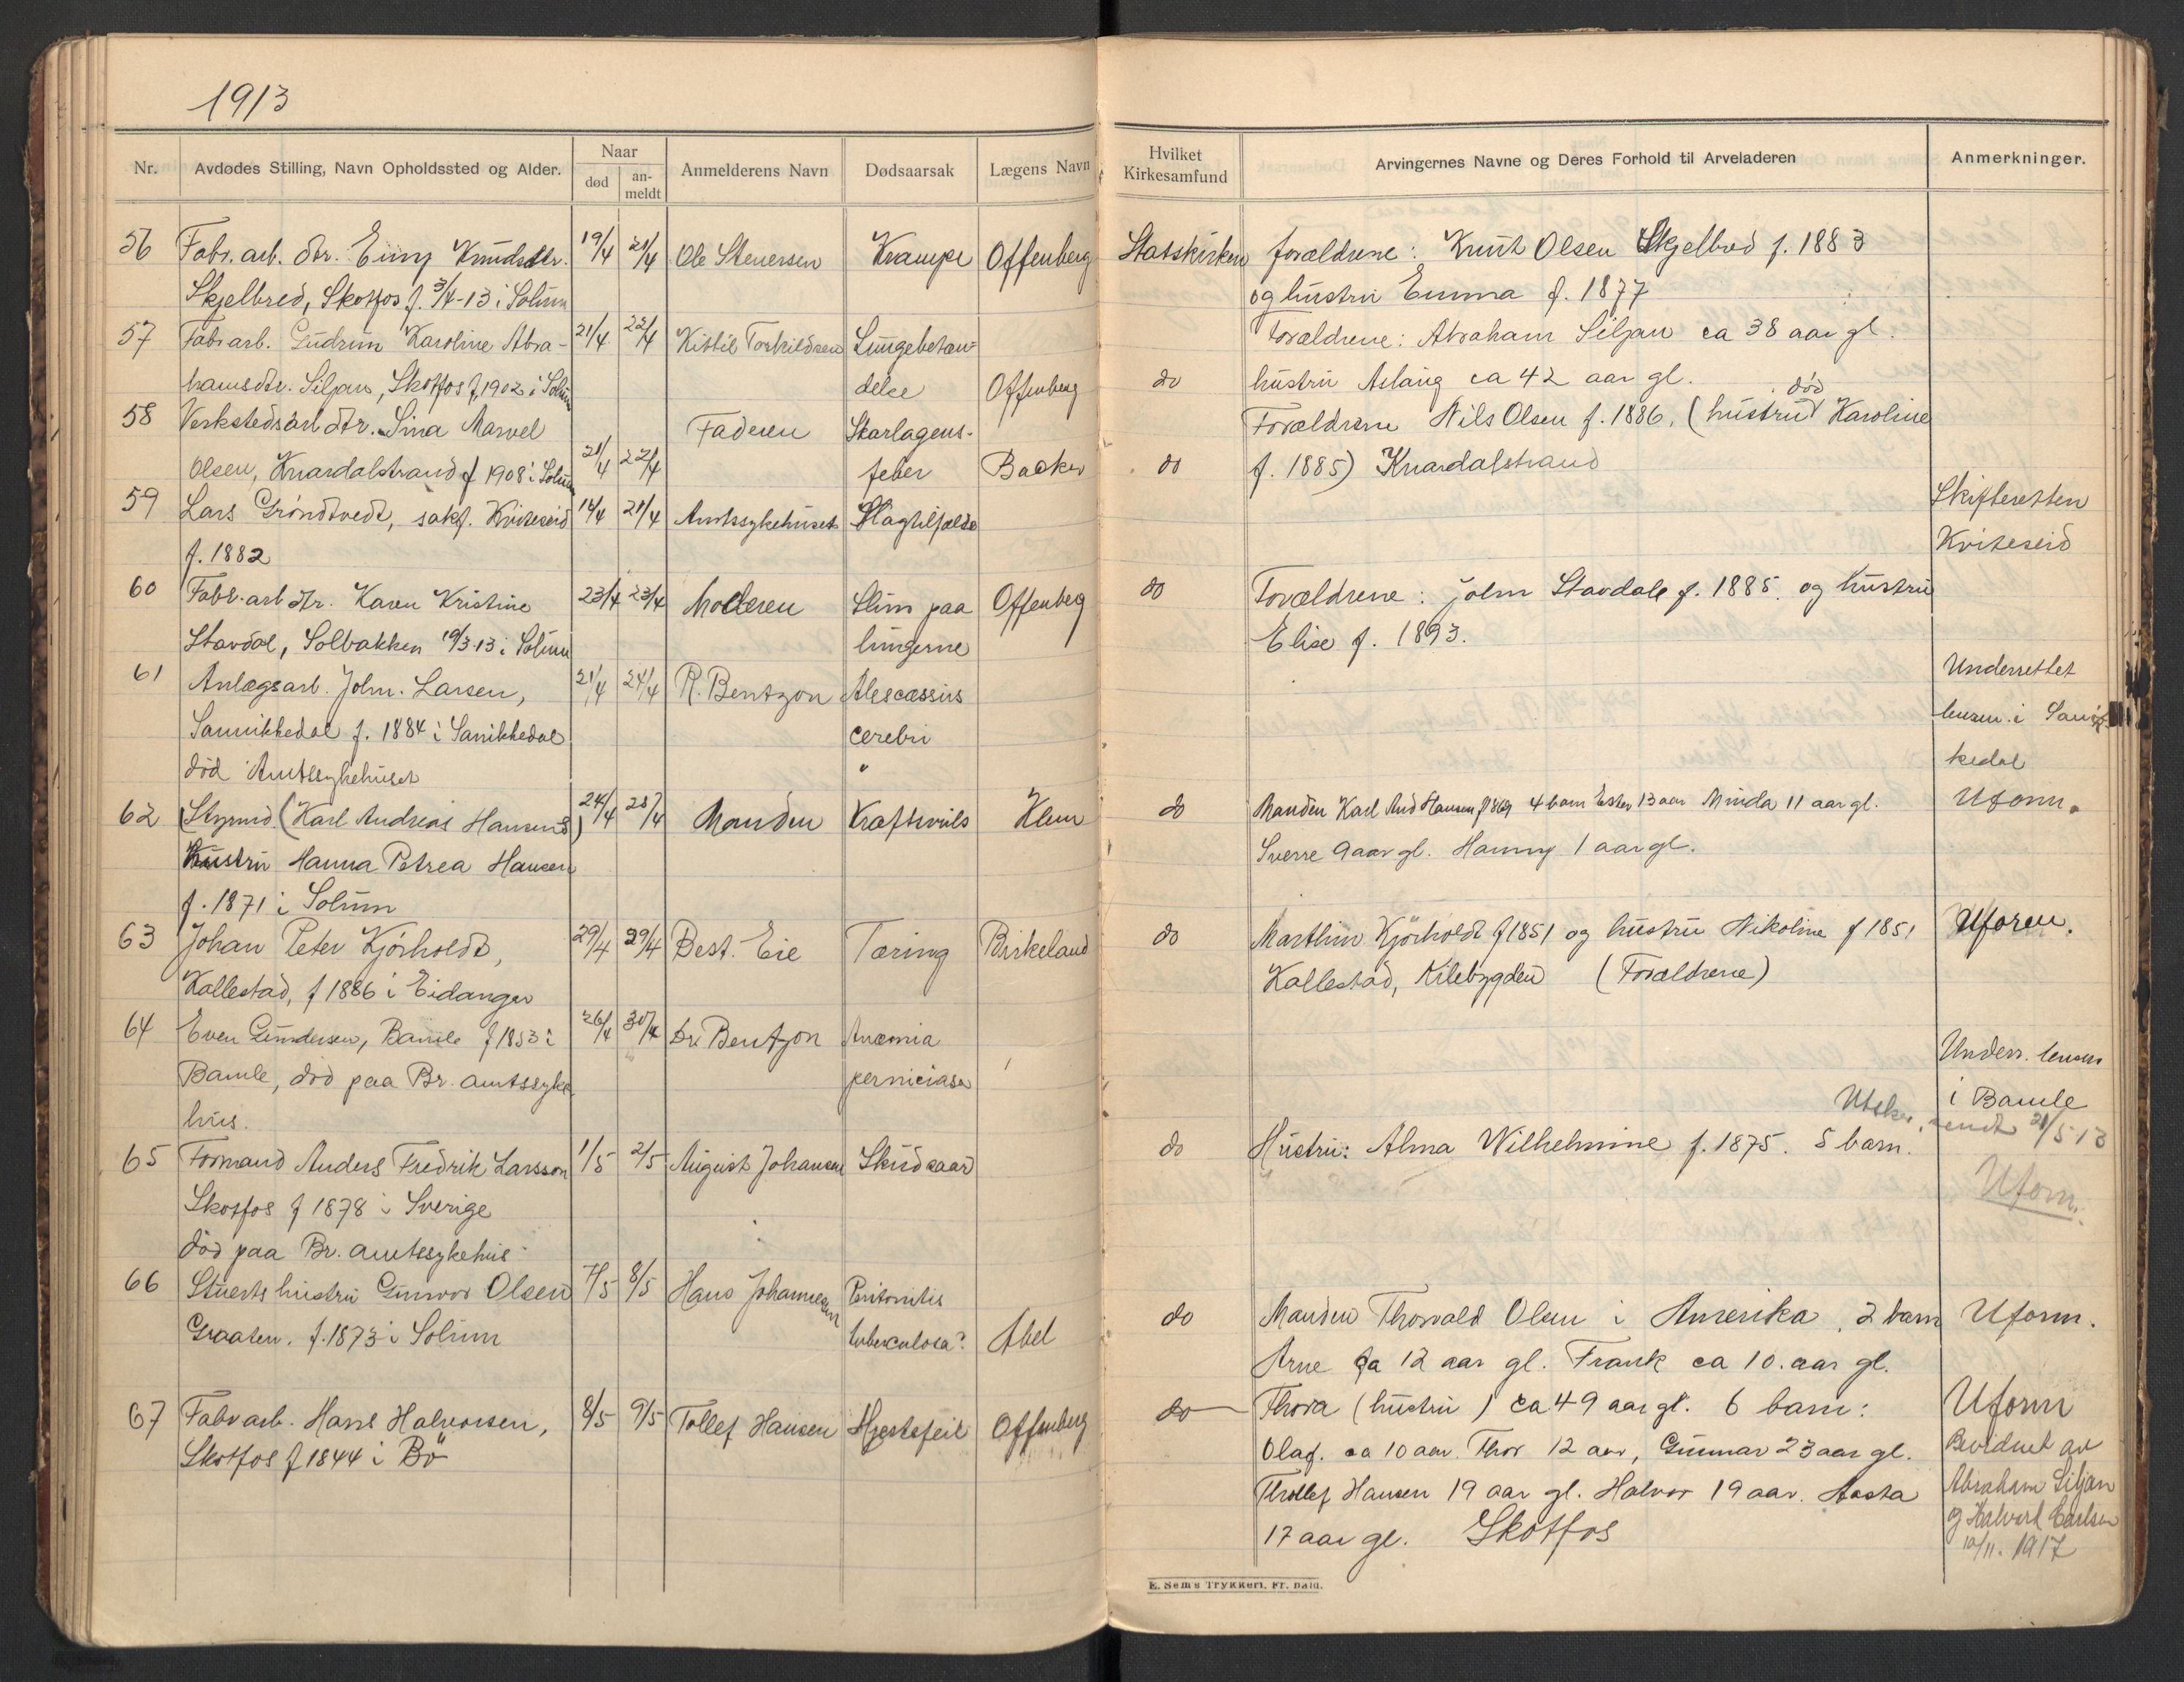 1913
Nr.
Avdødes Stilling, Navn Opholdssted og Alder.
Naar
død
an-
meldt
Anmelderens Navn
Dødsaarsak
Lægens Navn
Hvilket
Kirkesamfund
Arvingernes Navne og Deres Forhold til Arveladeren
Anmerkninger.
56 Fabr. arb. dtr. Einy Knudsdtr. 19/4 21/4 Ole Stenersen Krampe Offenberg Statskirken forældrene: Knut Olsen Skjelbred f. 1883
Skjelbred, Skotfos f. 3/4-13 i Solum og hustru Emma f. 1877
57 Fabr arb. Gudrun Karoline Abra- 21/4 22/4 Kittil Torkildsen Lungebetæn- Forældrene: Abraham Siljan ca 38 aar gl.
hamsdtr. Siljan, Skotfos f 1902 i Solum delse Offenberg do hustru Aslaug ca 42 aar gl.
58 Verkstedsarb dtr. Sina Marvel Faderen Skarlagens- Forældrene Nils Olsen f. 1886. (hustru død Karoline
Olsen, Knardalstrand f 1908 i Solum 21/4 22/4 feber Backer do f. 1885) Knardalstrand
59 Lars Gröndtvedt, sakf. Kviteseid 14/4 21/4 Amtssykehuset Slagtilfælde Skifteretten
f. 1882 Kviteseid
60 Fabr. arb dtr. Karen Kristine 23/4 23/4 Moderen Slim paa Offenberg do Forældrene: John Stavdal f. 1885. og hustru
Stavdal, Solbakken 19/3-13 i Solum lungerne Elise f. 1893.
61 Anlægsarb. John. Larsen, 21/4 24/4 R. Bentzon Alescessius Underrettet
Sannikkedal f. 1884 i Sanikkedal cerebri lensm. i Sanik
död Amtssykehuset kedal
62 Styrmd. (Karl Andreas Hansens) 24/4 28/4 Manden Kraftsvuls Klem do Manden Karl And Hansen f 1869 4 barn Ester 13 aar Minda 11 aar gl. Uform.
Hustru Hanna Petrea Hansen Sverre 9 aar gl. Hanny 1 aar gl.
f. 1871 i Solum
63 Johan Peter Kjörholdt, 29/4 29/4 Best. Eie Tæring Birkeland do Marthin Kjörholdt f 1851 og hustru Nikoline f 1851 Uforen.
Kallestad, f 1886 i Eidanger Kallestad, Kilebygden (Forældrene)
64 Even Gundersen, Bamle f 1853 i 26/4 30/4 Dr. Bentzon Anæmia Underr. lensm
Bamle, död paa Br. amtssyke perniciasa i Bamle
hus. sendt 21/5 13
65 Formand Anders Fredrik Larsson 1/5 2/5 August Johansen Skudsaar do Hustru: Alma Wilhelmine f. 1875. 5 barn.
Skotfos f 1878 i Sverige Uform.
död paa Br. amtssykehus
66 Stuerts hustru Gunvor Olsen 7/5 8/5 Hans Johannesen Peritonitis do Manden Thorvald Olsen i Amerika, 2 barn Uform.
Graaten. f. 1873 i Solum tuberculosa? Abel Arne ca 12 aar gl. Frank ca 10. aar gl.
67 Fabr arb. Hans Halvorsen, 8/5 9/5 Tollef Hansen Hjertefeil Offenberg do Thora (hustru) ca 49 aar gl. 6 barn: Uform
Skotfos f 1844 i Bö Olaf. ca 10 aar. Thor 12 aar, Gunnar 23 aar gl. Bevidnet av
Thollef Hansen 19 aar gl. Halvor 19 aar. Aasta Abraham Siljan
17 aar gl. Skotfos og Halvard Carlsen
10/11. 1917
E. Sem's Trykkeri, Fr. hald.